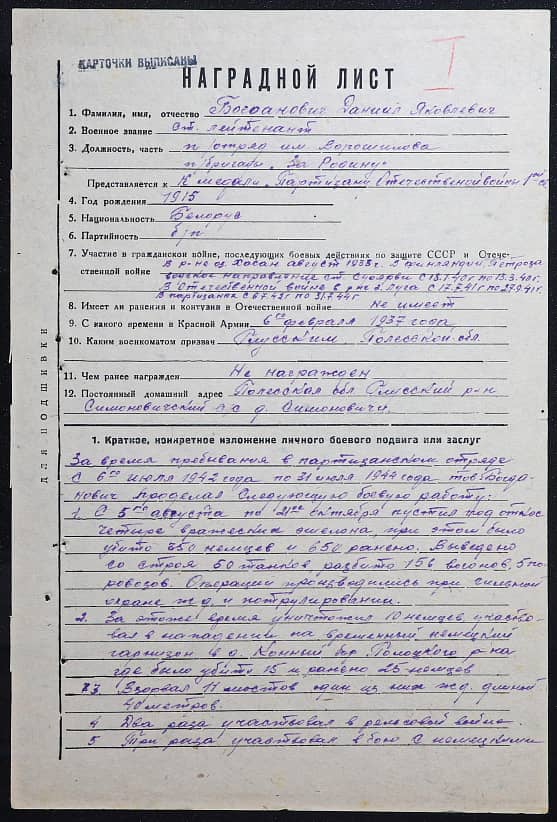 КАРТОЧКИ ВЫПИСАНЫ
I
НАГРАДНОЙ ЛИСТ
1. Фамилия, имя, отчество Богданович Даниил Яковлевич
2. Военное звание ст. лейтенант
3. Должность, часть п/отряд им Ворошилова
п/бригады „За Родину"
Представляется к К медали „Партизану Отечественной войны I ой ст
4. Год рождения 1915
5. Национальность Белорус
6. Партийность б/п
7. Участие в гражданской войне, последующих боевых действиях по защите СССР и Отече-
ственной войне В р-не оз. Хасан август 1938 г. В финляндии
направление ст. Суоярви с 13.1.40 г по 13.3.40г.
В Отечественной войне в р-не г. Луга с 17.7.41 г по 27.9.41 г.
В партизанах с 6.7.42 г по 31.7.44 г
8. Имеет ли ранения и контузии в Отечественной войне Не имеет
9. С какого времени в Красной Армии 6го февраля 1937 года
10. Каким военкоматом призван Глусским Полесской обл.
11. Чем ранее награжден Не награжден
12. Постоянный домашний адрес Полесская обл Глусский р-н
Симоновичский с/с д. Симоновичи.
ДЛЯ ПОДШИВКИ
1. Краткое, конкретное изложение личного боевого подвига или заслуг
За время пребывания в партизанском отряде
С 6го июля 1942 года по 31 июля 1944 года тов. Богда-
нович проделал следующую боевую работу:
1. С 5го августа по 21ое октября пустил под откос
четыре вражеских эшелона, при этом было
убито 350 немцев и 650 ранено. Выведено
со строя 50 танков, разбито 156 вагонов, 5 па-
ровозов. Операции производились при сильной
охране ж.д. и потрулировании.
2. За этоже время уничтожил 10 немцев, участво-
вал в нападении на временный немецкий
гарнизон в д. Конный Бор Полоцкого р-на
где было убито 15 и ранено 25 немцев
3. Взорвал 11 мостов один из них ж.д. длиной
40 метров.
4 Два раза участвовал в рельсовой войне.
5 Три раза участвовал в бою с немецкими